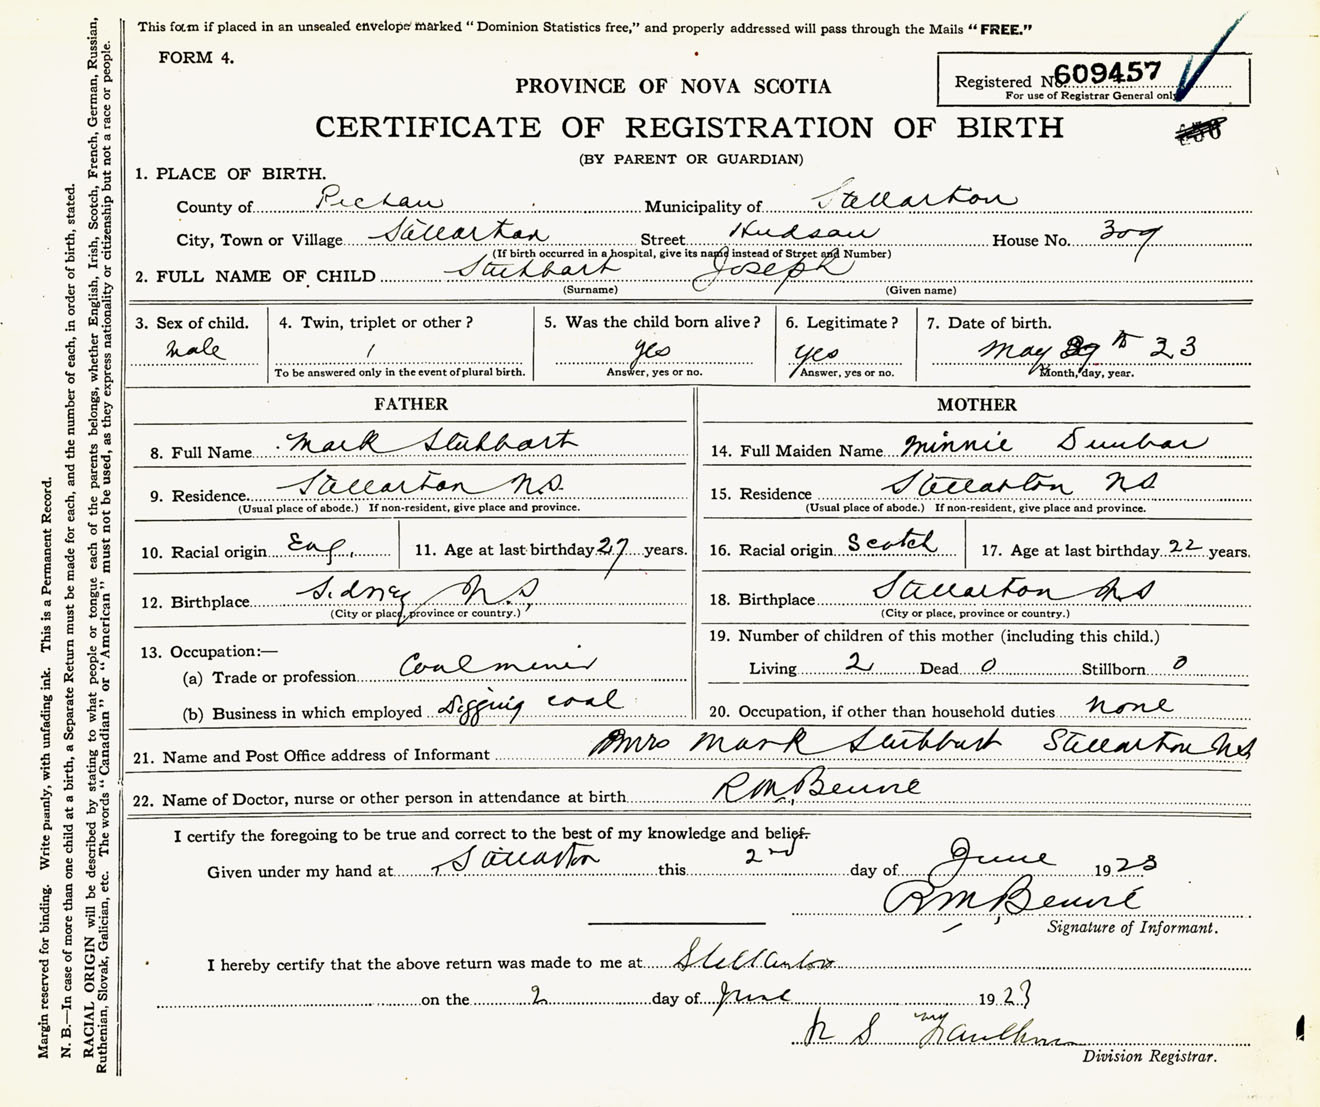 This form if placed in an unsealed envelope marked "Dominion Statistics free," and properly addressed will pass through the Mails "FREE."
FORM 4.
Registered No. 609457
For use of Registrar General only
PROVINCE OF NOVA SCOTIA
CERTIFICATE OF REGISTRATION OF BIRTH
(BY PARENT OR GUARDIAN)
1. PLACE OF BIRTH.
County of Pictou Municipality of Stellarton
City, Town or Village Stellarton Street Hudson House No. 309
(If birth occurred in a hospital, give its name instead of Street and Number)
2. FULL NAME OF CHILD Stubbart Joseph
(Surname) (Given name)
3. Sex of child. 4. Twin, triplet or other? 5. Was the child born alive? 6. Legitimate? 7. Date of birth.
Male 1 yes yes May 29th 23
To be answered only in the event of plural birth. Answer, yes or no. Answer, yes or no. Month, day, year.
FATHER
8. Full Name Mark Stubbart
9. Residence Stellarton N.S.
(Usual place of abode.) If non-resident, give place and province.
10. Racial origin Eng. 11. Age at last birthday 27 years.
12. Birthplace Sidney N.S,
(City or place, province or country.)
13. Occupation:—
(a) Trade or profession Coal miner
(b) Business in which employed Digging coal
MOTHER
14. Full Maiden Name Minnie Dunbar
15. Residence Stellarton NS
(Usual place of abode.) If non-resident, give place and province.
16. Racial origin Scotch 17. Age at last birthday 22 years.
18. Birthplace Stellarton NS
(City or place, province or country.)
19. Number of children of this mother (including this child.)
Living 2 Dead 0 Stillborn 0
20. Occupation, if other than household duties None
21. Name and Post Office address of Informant Mrs Mark Stubbart Stellarton NS
22. Name of Doctor, nurse or other person in attendance at birth R M
I certify the foregoing to be true and correct to the best of my knowledge and belief.
Given under my hand at Stellarton this 2nd day of June 1923
R M
Signature of Informant.
I hereby certify that the above return was made to me at Stellarton
on the 2 day of June 1923
Division Registrar.
Margin reserved for binding. Write plainly, with unfading ink. This is a Permanent Record.
N. B.—In case of more than one child at a birth, a Separate Return must be made for each, and the number of each, in order of birth, stated.
RACIAL ORIGIN will be described by stating to what people or tongue each of the parents belongs, whether English, Irish, Scotch, French, German, Russian,
Ruthenian, Slovak, Galician, etc. The words "Canadian" or "American" must not be used, as they express nationality or citizenship but not a race or people.